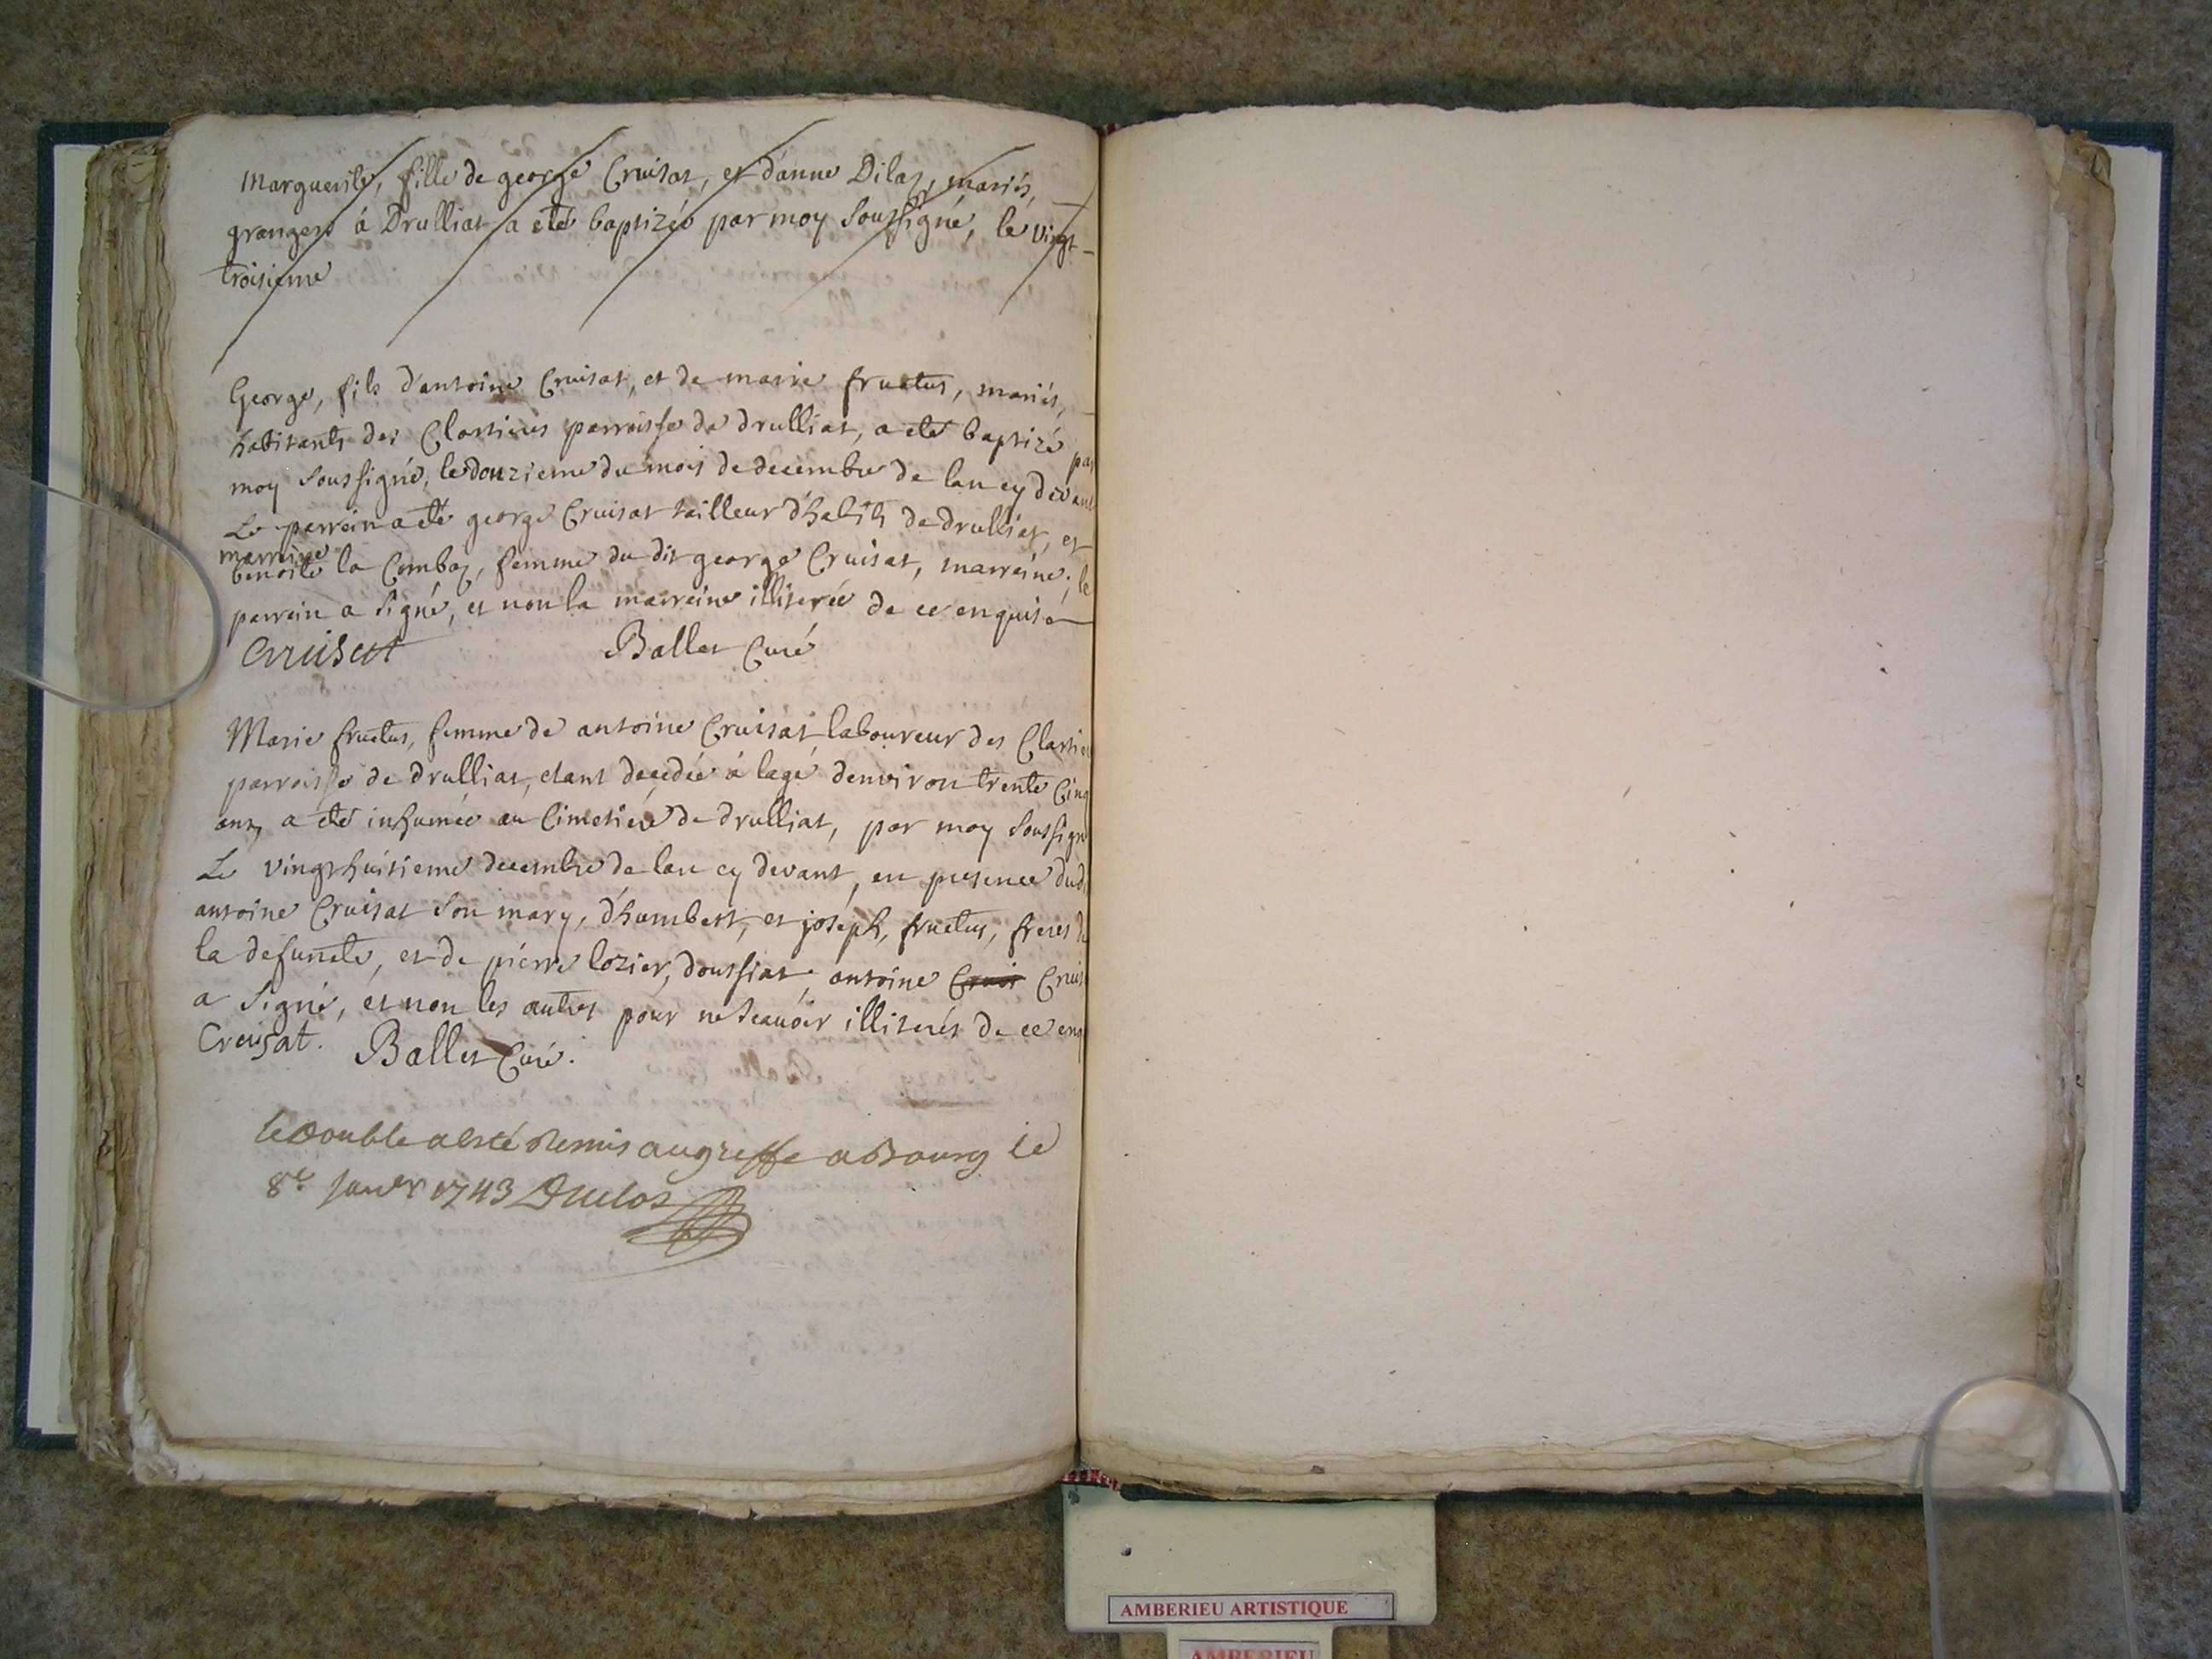 Marguerite, fille de george Cruisat, et d'anne Dilaz, mariés,
grangers á Drulliat a eté baptizéé par moy Soussigné, le vingt-
troisieme
George, fils d'antoine Cruisat, et de marie fructus, mariés,
habitants des Clartieres parroisse de drulliat, a eté baptizé par
moy Soussigné, le douzieme du mois de decembre de lan cy devant
Le parrein a eté george Cruisat tailleur d'habits de drulliat, et
marreine
benoite la Combaz, femme du dit george Cruisat, marreine; le
parrein a signé, et non la marreine illiterée de ce enquise
Cruisat Ballet Curé
Marie fructus, femme de antoine Cruisat laboureur des
parroisse de drulliat, etant decedée á lage denviron trente Cinq
ans, a eté inhumée au Cimetiere de drulliat, par moy Soussigné
Le vingthuitieme decembre de lan cy devant, en presence dud
antoine Cruisat son mary, d'humbert, et joseph, fructus, freres de
la defuncte, et de pierre lozier, doussiat, antoine Cruis
a signé, et non les autres pour ne scauoir illiterés de ce enq
Creusat. Ballet Curé.
le double a esté Remis au greffe a Bourg le
8e Janer 1743 Duclos
AMBERIEU ARTISTIQUE
AMBERIEU